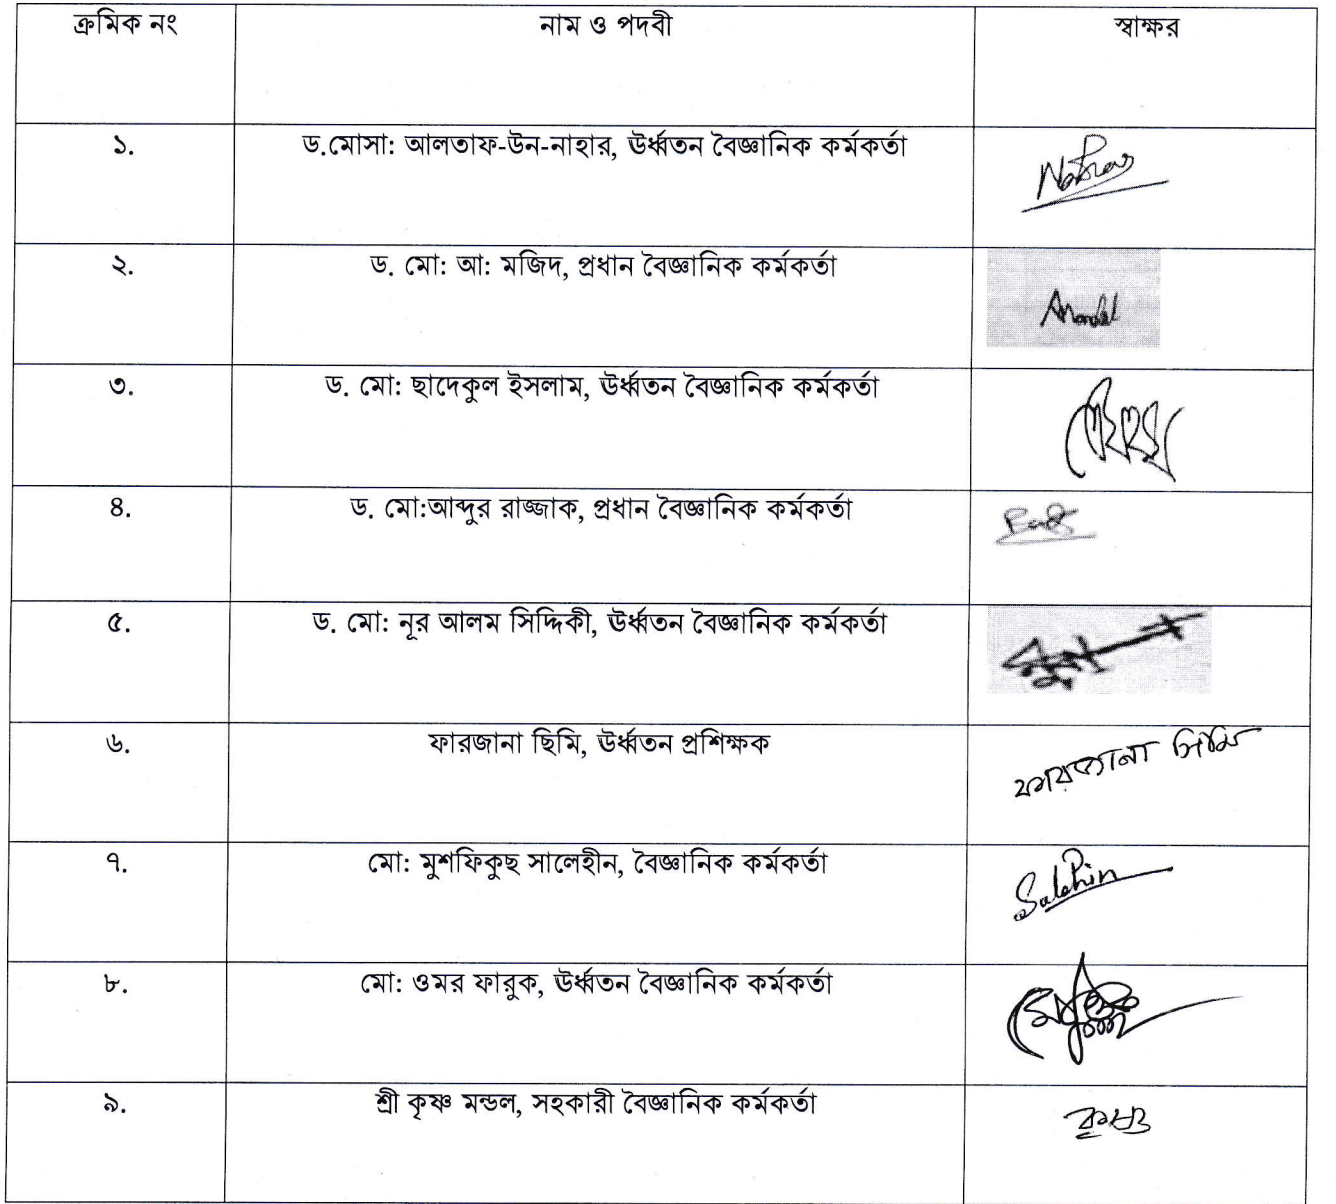 ক্রমিক নং নাম ও পদবী স্বাক্ষর
১. ড.মোসা: আলতাফ-উন-নাহার, ঊর্ধ্বতন বৈজ্ঞানিক কর্মকর্তা
২. ড. মো: আ: মজিদ, প্রধান বৈজ্ঞানিক কর্মকর্তা
৩. ড. মো: ছাদেকুল ইসলাম, ঊর্ধ্বতন বৈজ্ঞানিক কর্মকর্তা
৪. ড. মো:আব্দুর রাজ্জাক, প্রধান বৈজ্ঞানিক কর্মকর্তা
৫. ড. মো: নূর আলম সিদ্দিকী, ঊর্ধ্বতন বৈজ্ঞানিক কর্মকর্তা
৬. ফারজানা ছিমি, ঊর্ধ্বতন প্রশিক্ষক ফারজানা সিমি
৭. মো: মুশফিকুছ সালেহীন, বৈজ্ঞানিক কর্মকর্তা Salehin
৮. মো: ওমর ফারুক, ঊর্ধ্বতন বৈজ্ঞানিক কর্মকর্তা
৯. শ্রী কৃষ্ণ মন্ডল, সহকারী বৈজ্ঞানিক কর্মকর্তা কৃষ্ণ